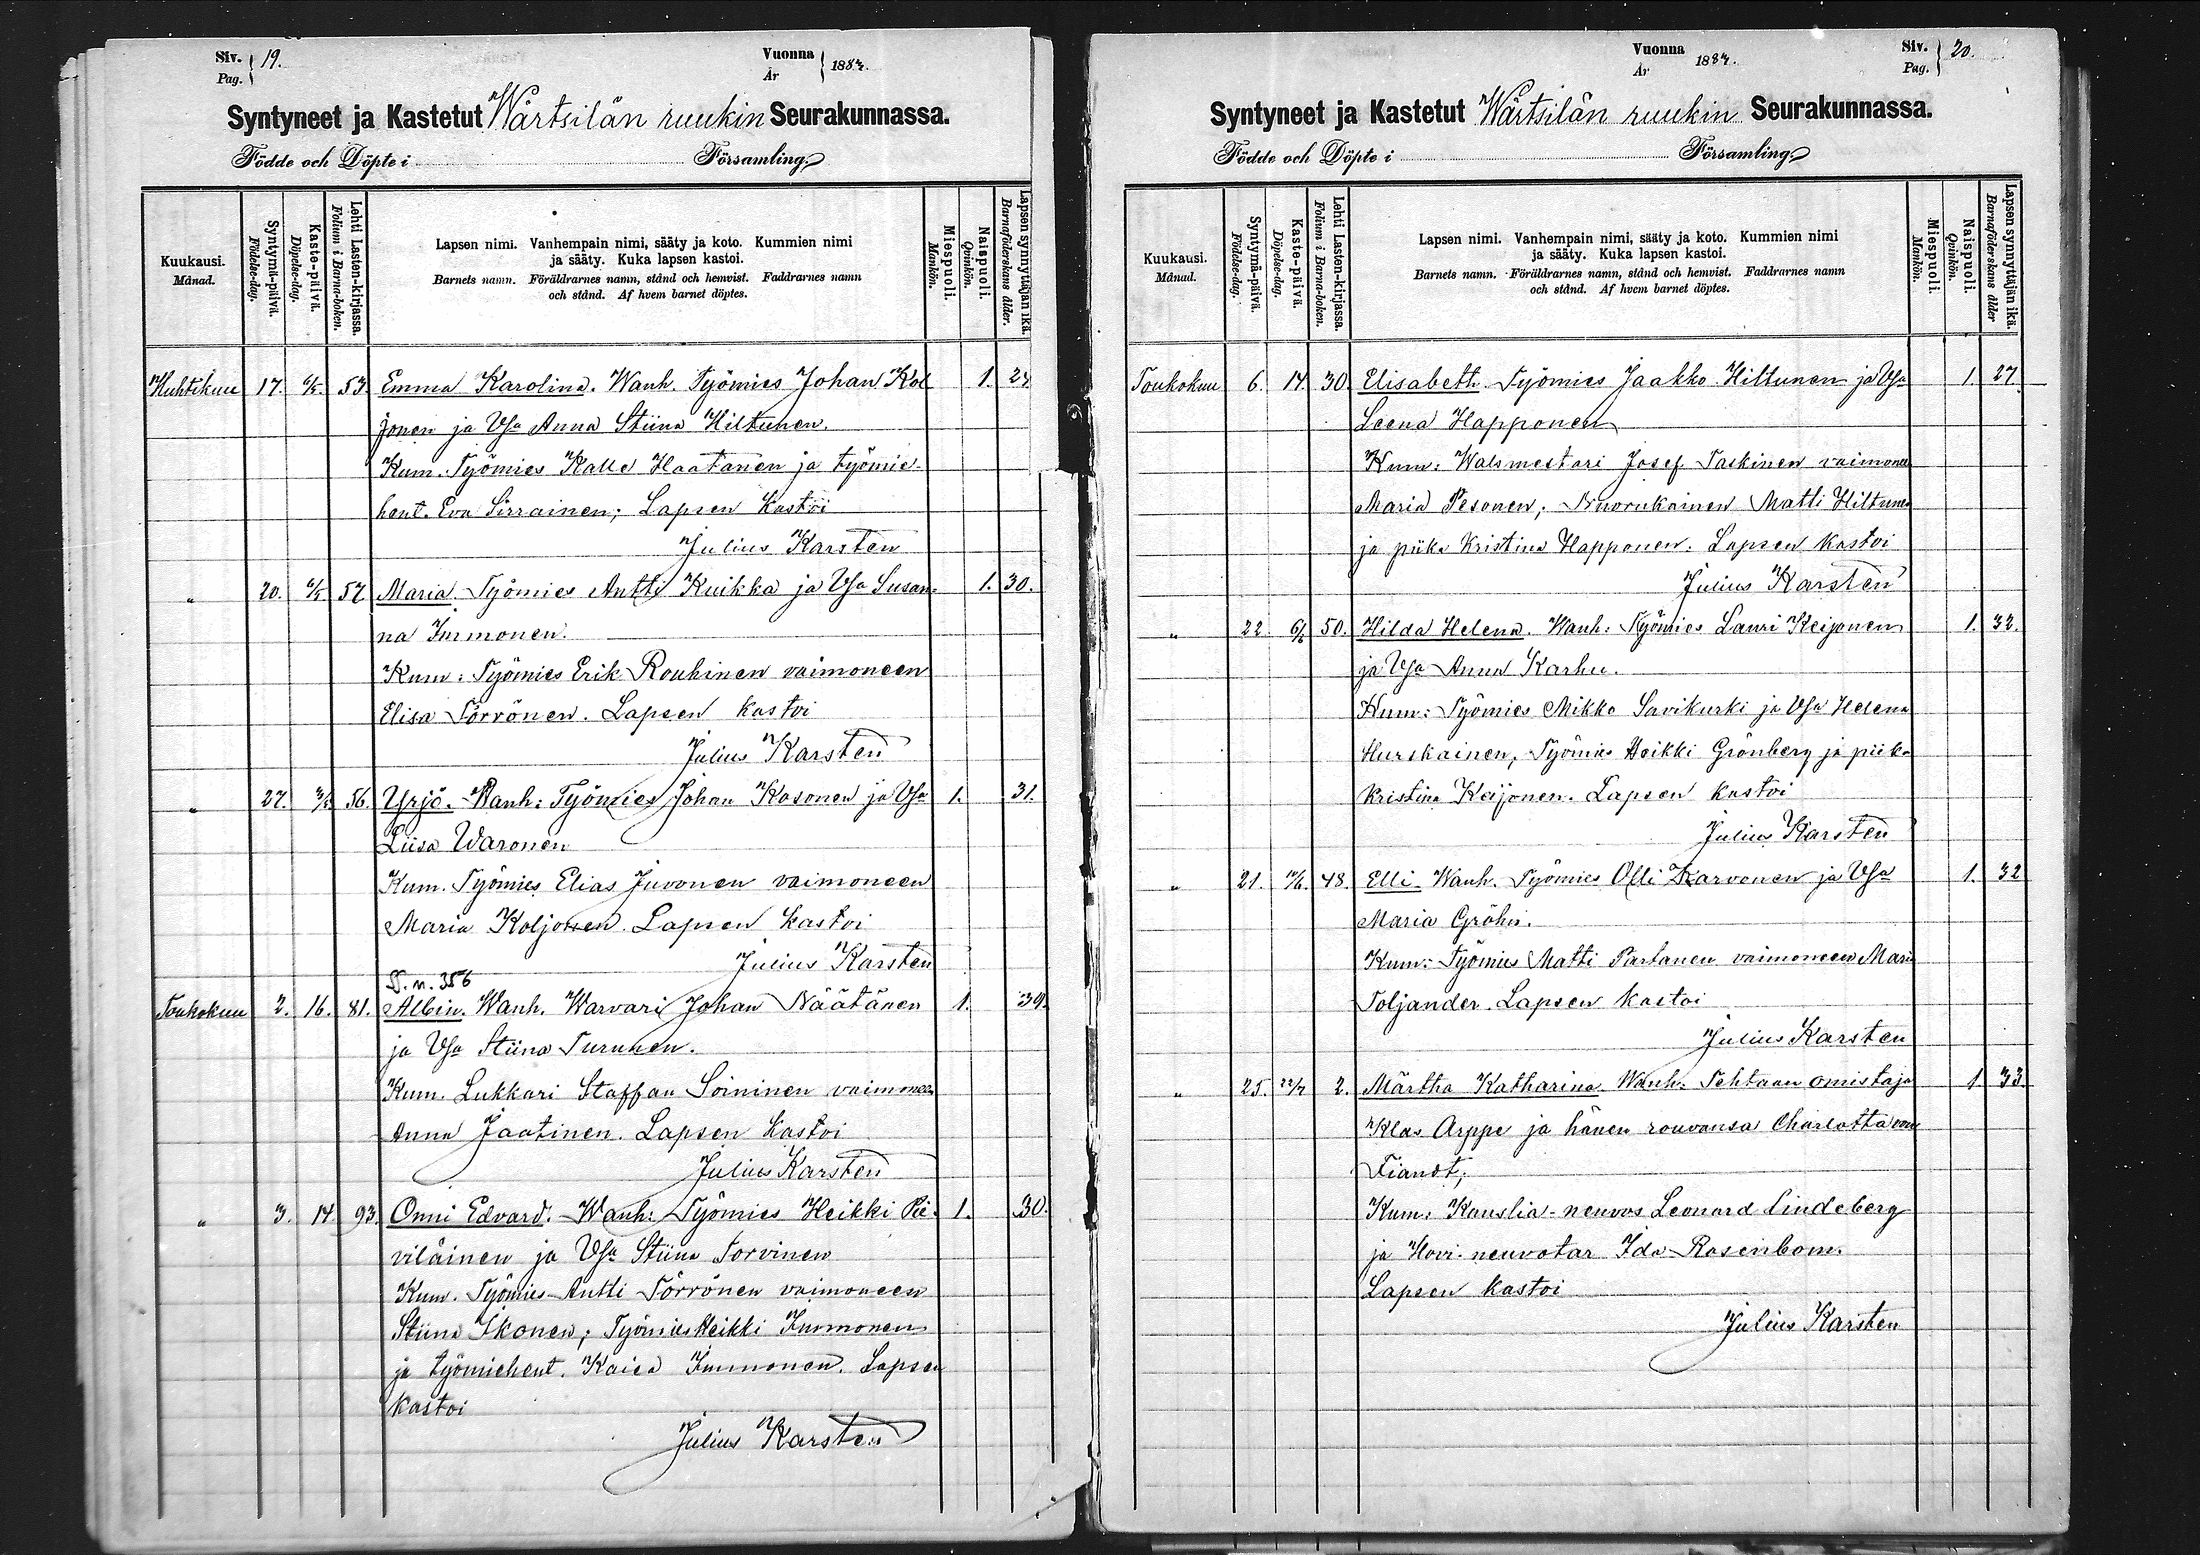 Siv. 19.
Pag.
Vuonna 1884.
År
Syntyneet ja Kastetut Wärtsilän ruukin Seurakunnassa.
Födde och Döpte i Församling.
Kuukausi. Månad.
Syntymä-päivä. Födelse-dag.
Kaste-päivä. Döpelse-dag.
Lehti Lasten-kirjassa. Folium i Barna-boken.
Lapsen nimi. Vanhempain nimi, sääty ja koto. Kummien nimi
ja sääty. Kuka lapsen kastoi.
Barnets namn. Föräldrarnes namn, stånd och hemvist. Faddrarnes namn
och stånd. Af hvem barnet döptes.
Miespuoli. Mankön.
Naispuoli. Qvinkön.
Lapsen synnyttäjän ikä. Barnaföderskans ålder.
Huhtikuu 17. 6/5 53. Emma Karolina. Wanh. Työmies Johan Kol 1. 24
jonen ja Vsa Anna Stiina Hiltunen.
Kum. Työmies Kalle Haatanen ja työmie-
hent. Eva Sirrainen; Lapsen Kastoi
Julius Karsten
" 20. 6/5 57 Maria. Työmies Antti Kuikka ja Vsa Susan- 1. 30.
na Immonen.
Kum: Työmies Erik Rouhinen vaimoneen
Elisa Törrönen. Lapsen kastoi
Julius Karsten
" 27. 56. Yrjö. Wanh: Työmies Johan Kosonen ja Vsa 1. 31.
Liisa Waronen
Kum. Työmies Elias Juvonen vaimoneen
Maria Koljonen. Lapsen kastoi
Julius Karsten
S. n. 356
Toukokuu 2. 16. 81. Albin. Wanh. Warvari Johan Näätänen 1. 39.
ja Vsa Stiina Turunen.
Kum. Lukkari Staffan Soininen vaimoneen
Anna Jaatinen. Lapsen Kastoi
Julius Karsten
" 3. 14 93. Onni Edvard. Wanh: Työmies Heikki Pie- 1. 30.
viläinen ja Vsa Stiina Torvinen
Kum. Työmies Antti Törrönen vaimoneen
Stiina Ikonen; Työmies Heikki Immonen
ja työmiehent. Kaisa Immonen. Lapsen
kastoi
Julius Karsten
Vuonna 1884.
År
Siv. 20.
Pag.
Syntyneet ja Kastetut Wärtsilän ruukin Seurakunnassa.
Födde och Döpte i Församling.
Kuukausi. Månad.
Syntymä-päivä. Födelse-dag.
Kaste-päivä. Döpelse-dag.
Lehti Lasten-kirjassa. Folium i Barna-boken.
Lapsen nimi. Vanhempain nimi, sääty ja koto. Kummien nimi
ja sääty. Kuka lapsen kastoi.
Barnets namn. Föräldrarnes namn, stånd och hemvist. Faddrarnes namn
och stånd. Af hvem barnet döptes.
Miespuoli. Mankön.
Naispuoli. Qvinkön.
Lapsen synnyttäjän ikä. Barnaföderskans ålder
Toukokuu 6. 14. 30. Elisabeth. Työmies Jaakko Hiltunen ja Vsa 1. 27.
Leena Happonen
Kum: Walsmestari Josef Taskinen vaimoneen
Maria Pesonen; Nuorukainen Matti Hiltunen
ja piika Kristina Happonen. Lapsen kastoi
Julius Karsten
" 22 6/6 50. Hilda Helena. Wanh: Työmies Lauri Keijonen 1. 32.
ja Vsa Anna Karhu.
Kum: Työmies Mikko Savikurki ja Vsa Helena
Hurskainen, Työmies Heikki Grönberg ja piika
Kristina Keijonen. Lapsen kastoi
Julius Karsten
" 21. 48. Elli. Wanh. Työmies Olli Karvonen ja Vsa 1. 32
Maria Gröhn.
Kum: Työmies Matti Partanen vaimoneen Mari
Toljander. Lapsen kastoi
Julius Karsten
" 25. 22/7 2. Märtha Katharina. Wanh: Tehtaan omistaja 1 33
Klas Arppe ja hänen rouvansa Charlotta von
Fiandt;
Kum: Kanslia-neuvos Leonard Lindeberg
ja Hovi-neuvotar Ida Rosenbom.
Lapsen kastoi
Julius Karsten